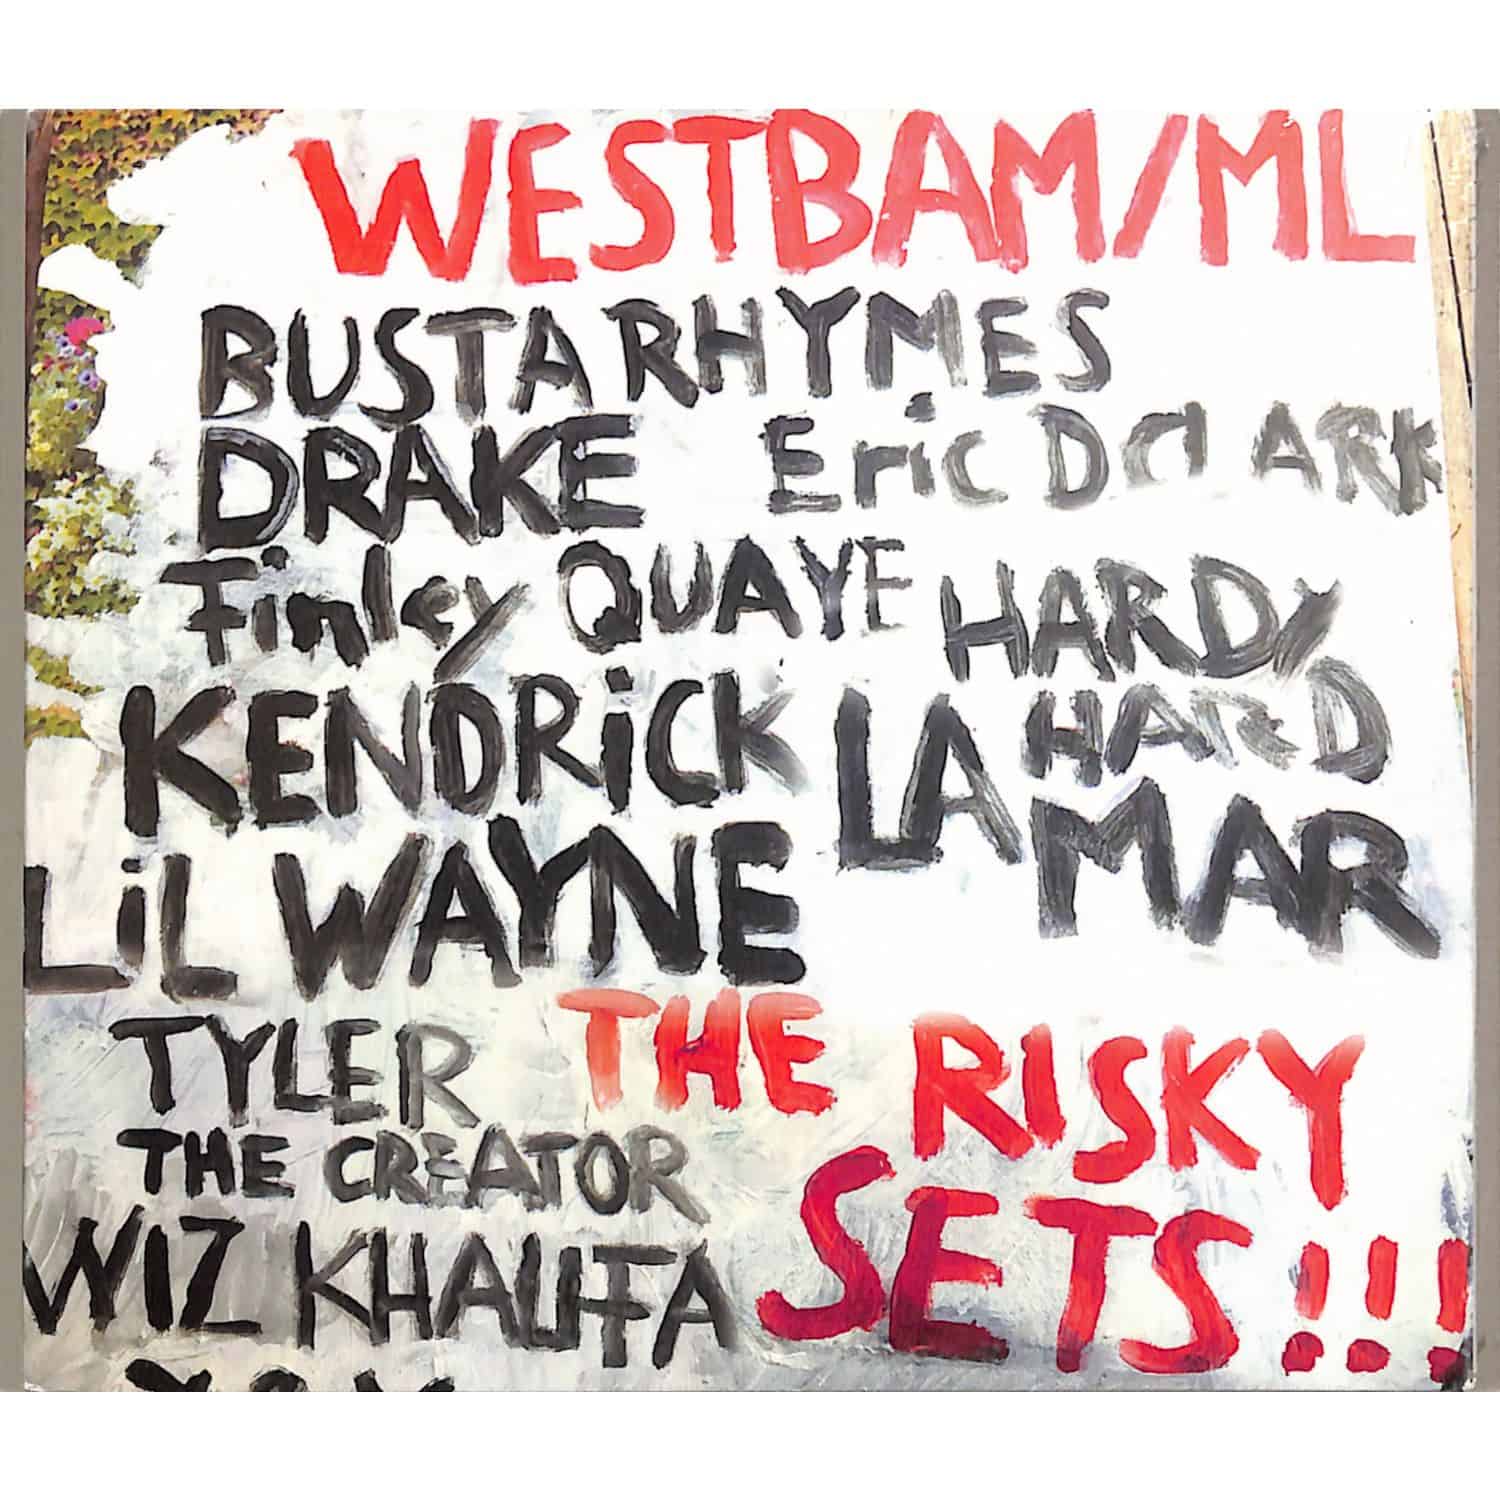 WESTBAM/ML
BUSTA RHYMES
DRAKE Eric D CLARK
Finley QUAYE HARDY
HARD
KENDRICK LAMAR
LiL WAYNE
TYLER
THE CREATOR
WIZ KHALIFA
THE RISKY
SETS!!!